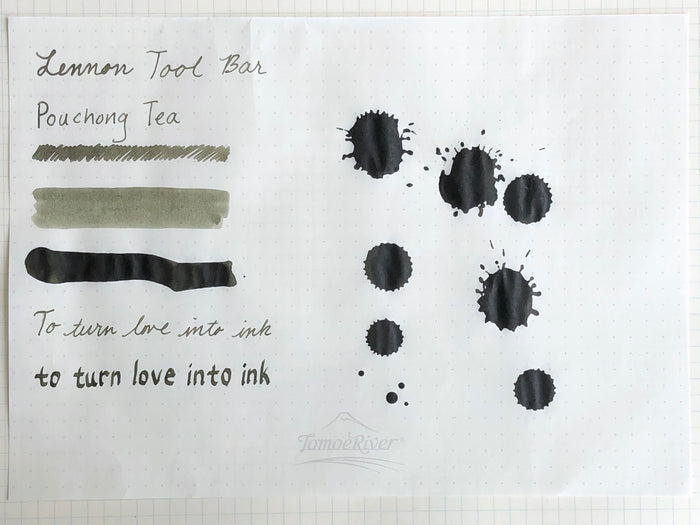 Lennon Tool Bar
Pouchong Tea
To turn love into ink
to turn love into ink
TomoeRiver®